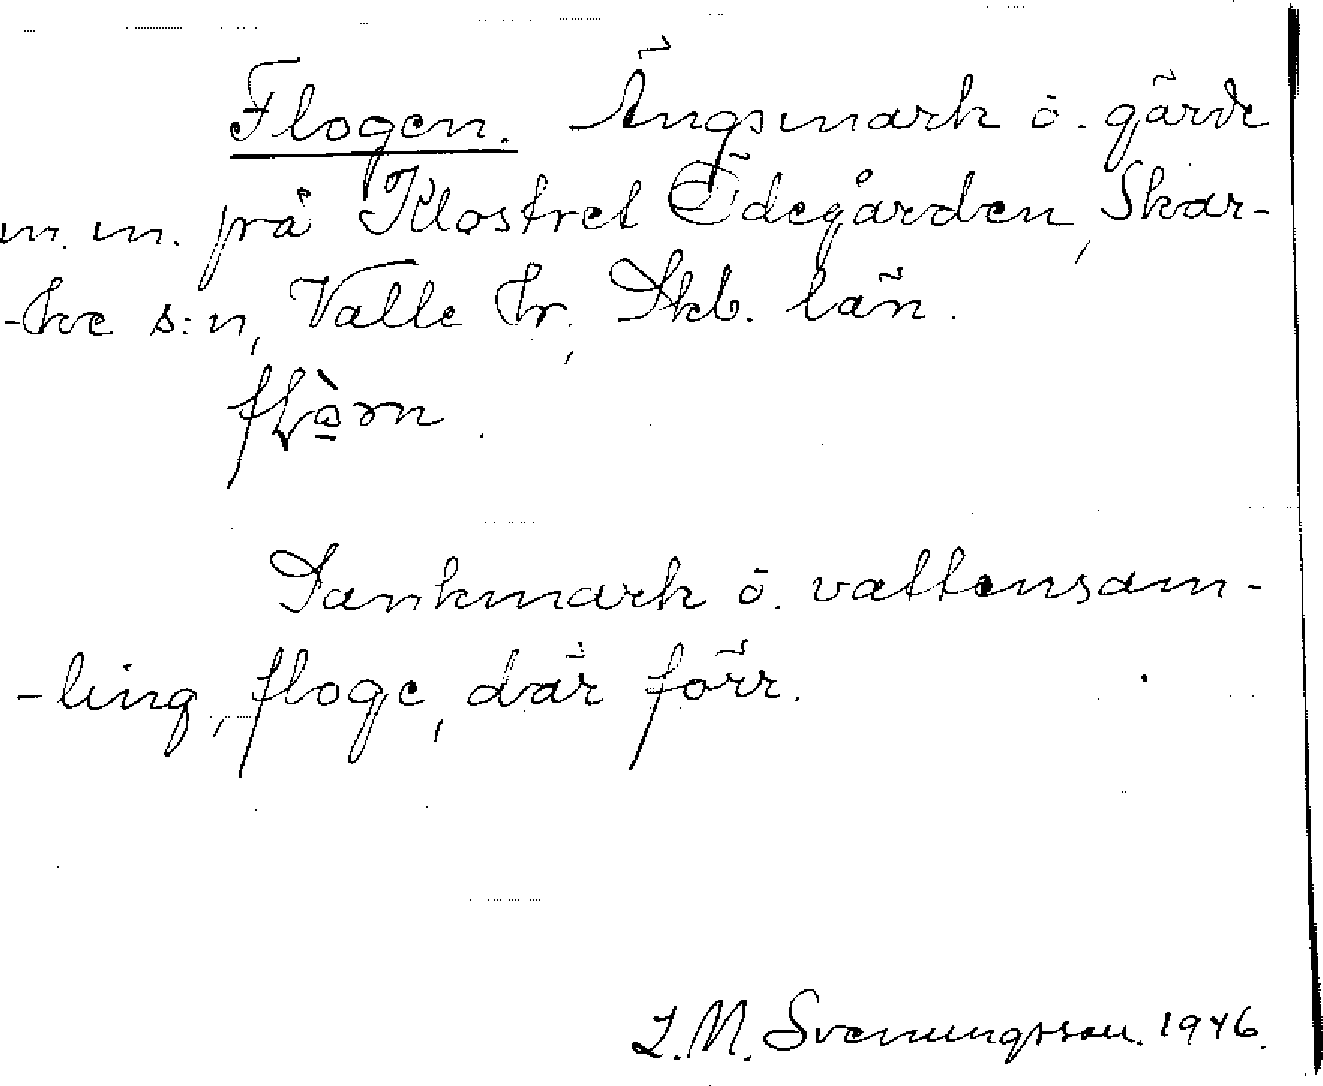 Flogen. Ängsmark ö. gärde
m. m. på Klostret Ödegården, Skar-
-ke s:n, Valle hr, Skb. län.

Sankmark ö. vattensam-
-ling, floge, där förr.
L. M. Svenungsson. 1946.